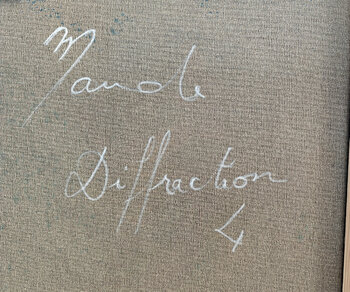 Manole
Diffraction
4